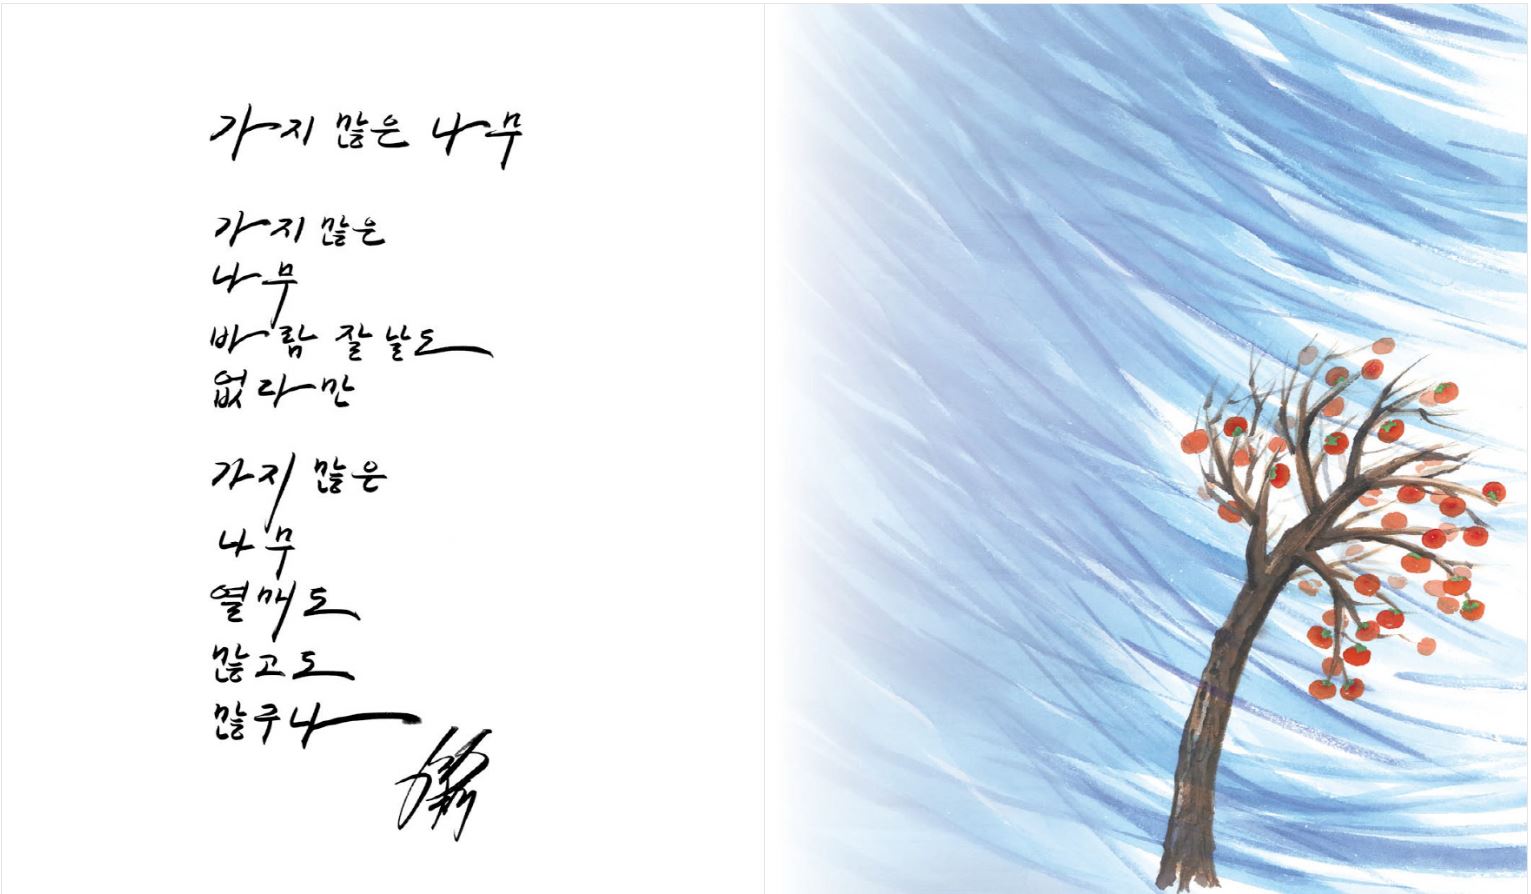 가지 많은 나무
가지 많은
나무
바람 잘 날도
없다만
가지 많은
나무
열매도
많고도
많쿠나